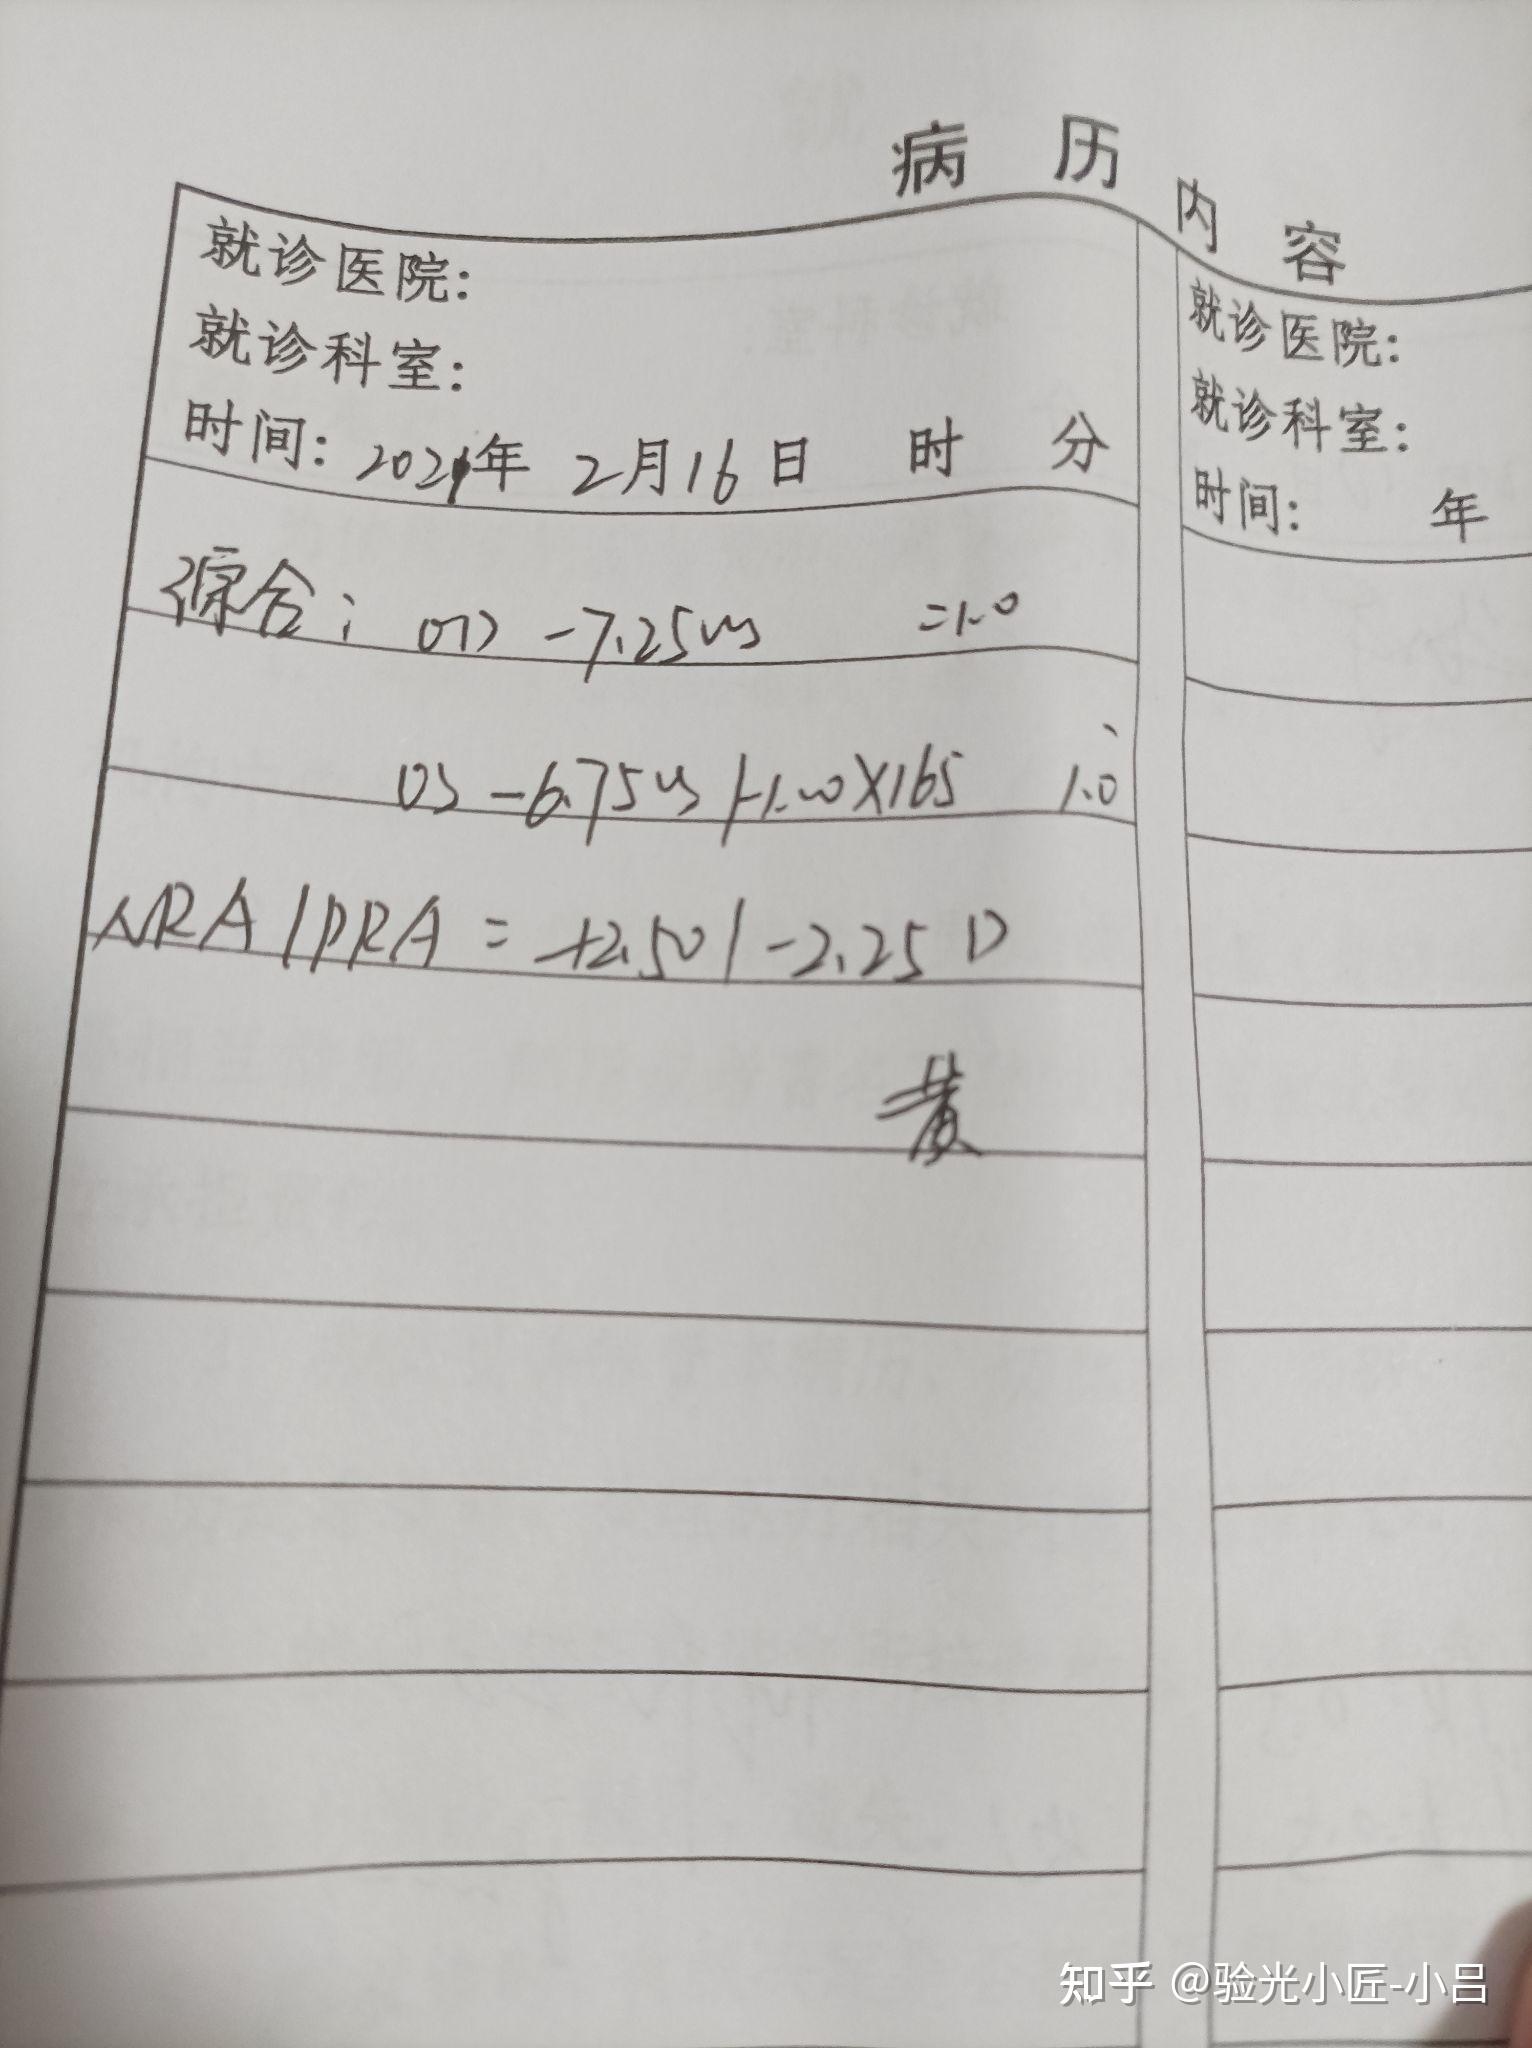 病 历 内 容
就诊医院:
就诊科室:
时间: 2021年 2月16日 时 分
综合: OD -7.25DS =1.0
OS -6.75DS/-1.00X165 1.0
NRA/PRA = +2.50/-2.25D
黄
就诊医院:
就诊科室:
时间: 年
知乎 @验光小匠-小吕